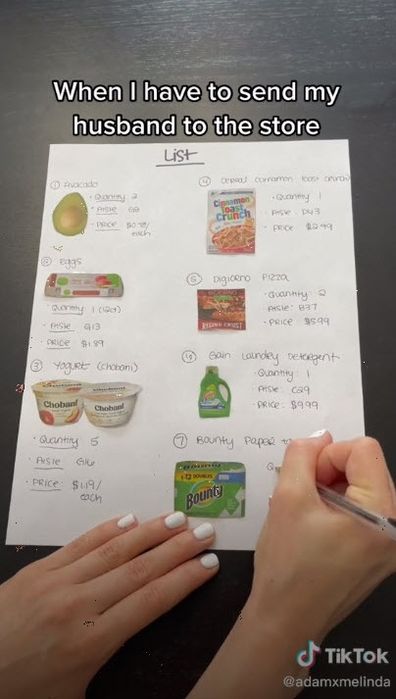 When I have to send my
husband to the store
List
1 Avocado
· Quantity 2
· Aisle
· Price
each
Eggs
· Quantity 1
· Aisle G13
· Price $1.89
3 Yogurt (chobani)
Chobani
Chobani
· Quantity 5
· Aisle G16
· Price $1.19/
each
4 Cereal cinnamon toast crunch
Cinnamon
Toast
Crunch
· Quantity 1
· Aisle D43
· Price $2.99
Digiorno Pizza
RISING CRUST
· Quantity 2
Aisle: B37
· Price $5.99
Gain laundry Detergent
· Quantity: 1
· Aisle: C29
· Price: $9.99
7 Bounty Paper
Bounty
TikTok
@adamxmelinda